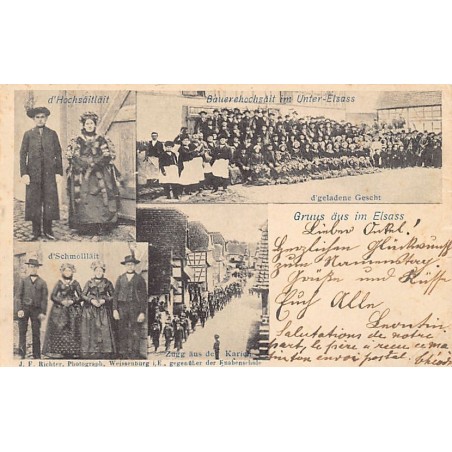 d'Hochzäitläit
Bäuerehochzäit im Unter-Elsass
d'geladene Gescht
Gruus äus im Elsass
d'Schmolläit
Zugg äus der
J. F. Richter, Photograph, Weissenburg i. E., gegenüber der Knabenschule
Lieber Onkel!
Herzlichen Glückwunsch
Zum Namenstag
Grüße und Küsse
Euch Alle
Leontin
Salutations de notre
part, le père a reçu ce ma
tin ton envoi postal.